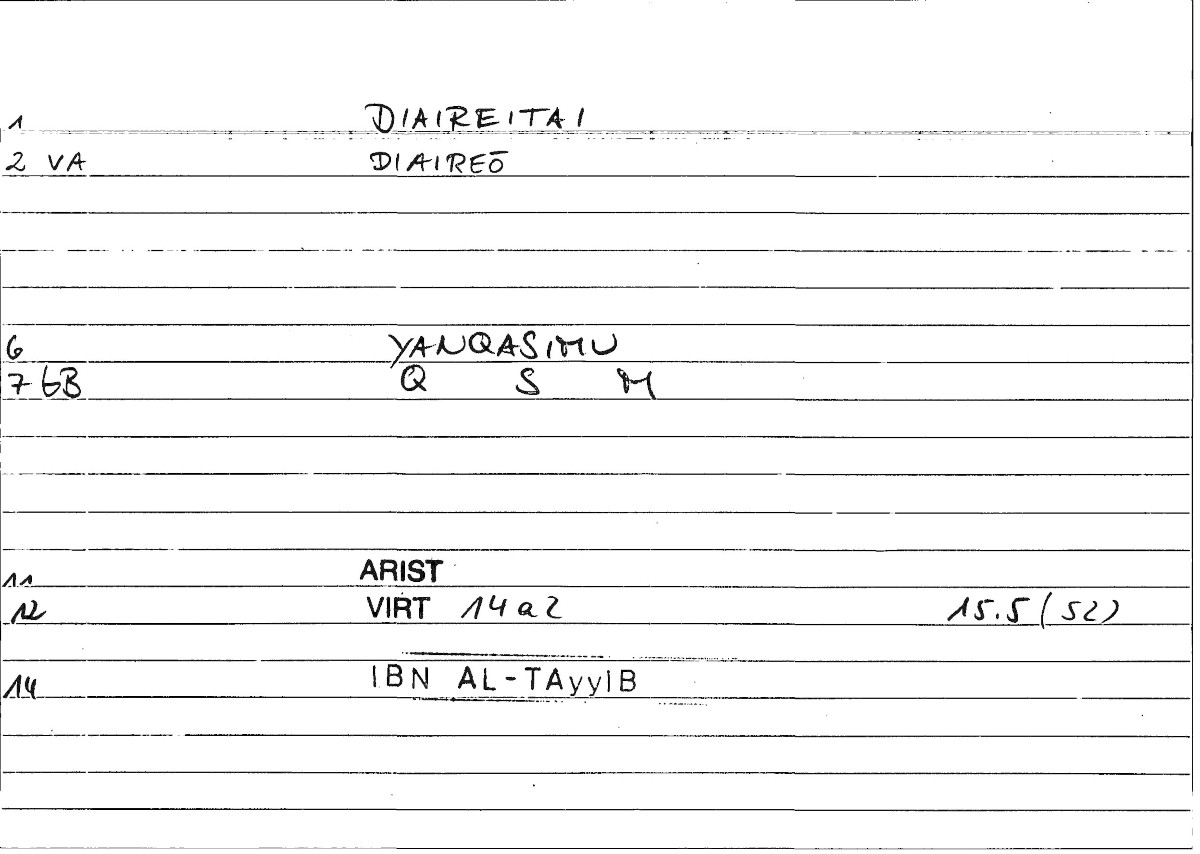 1 DIAIREITAI
2 VA DIAIREŌ
6 YANQASIMU
7 GB Q S M
11 ARIST
12 VIRT 14a2 15.5(52)
14 IBN AL-TAyyIB